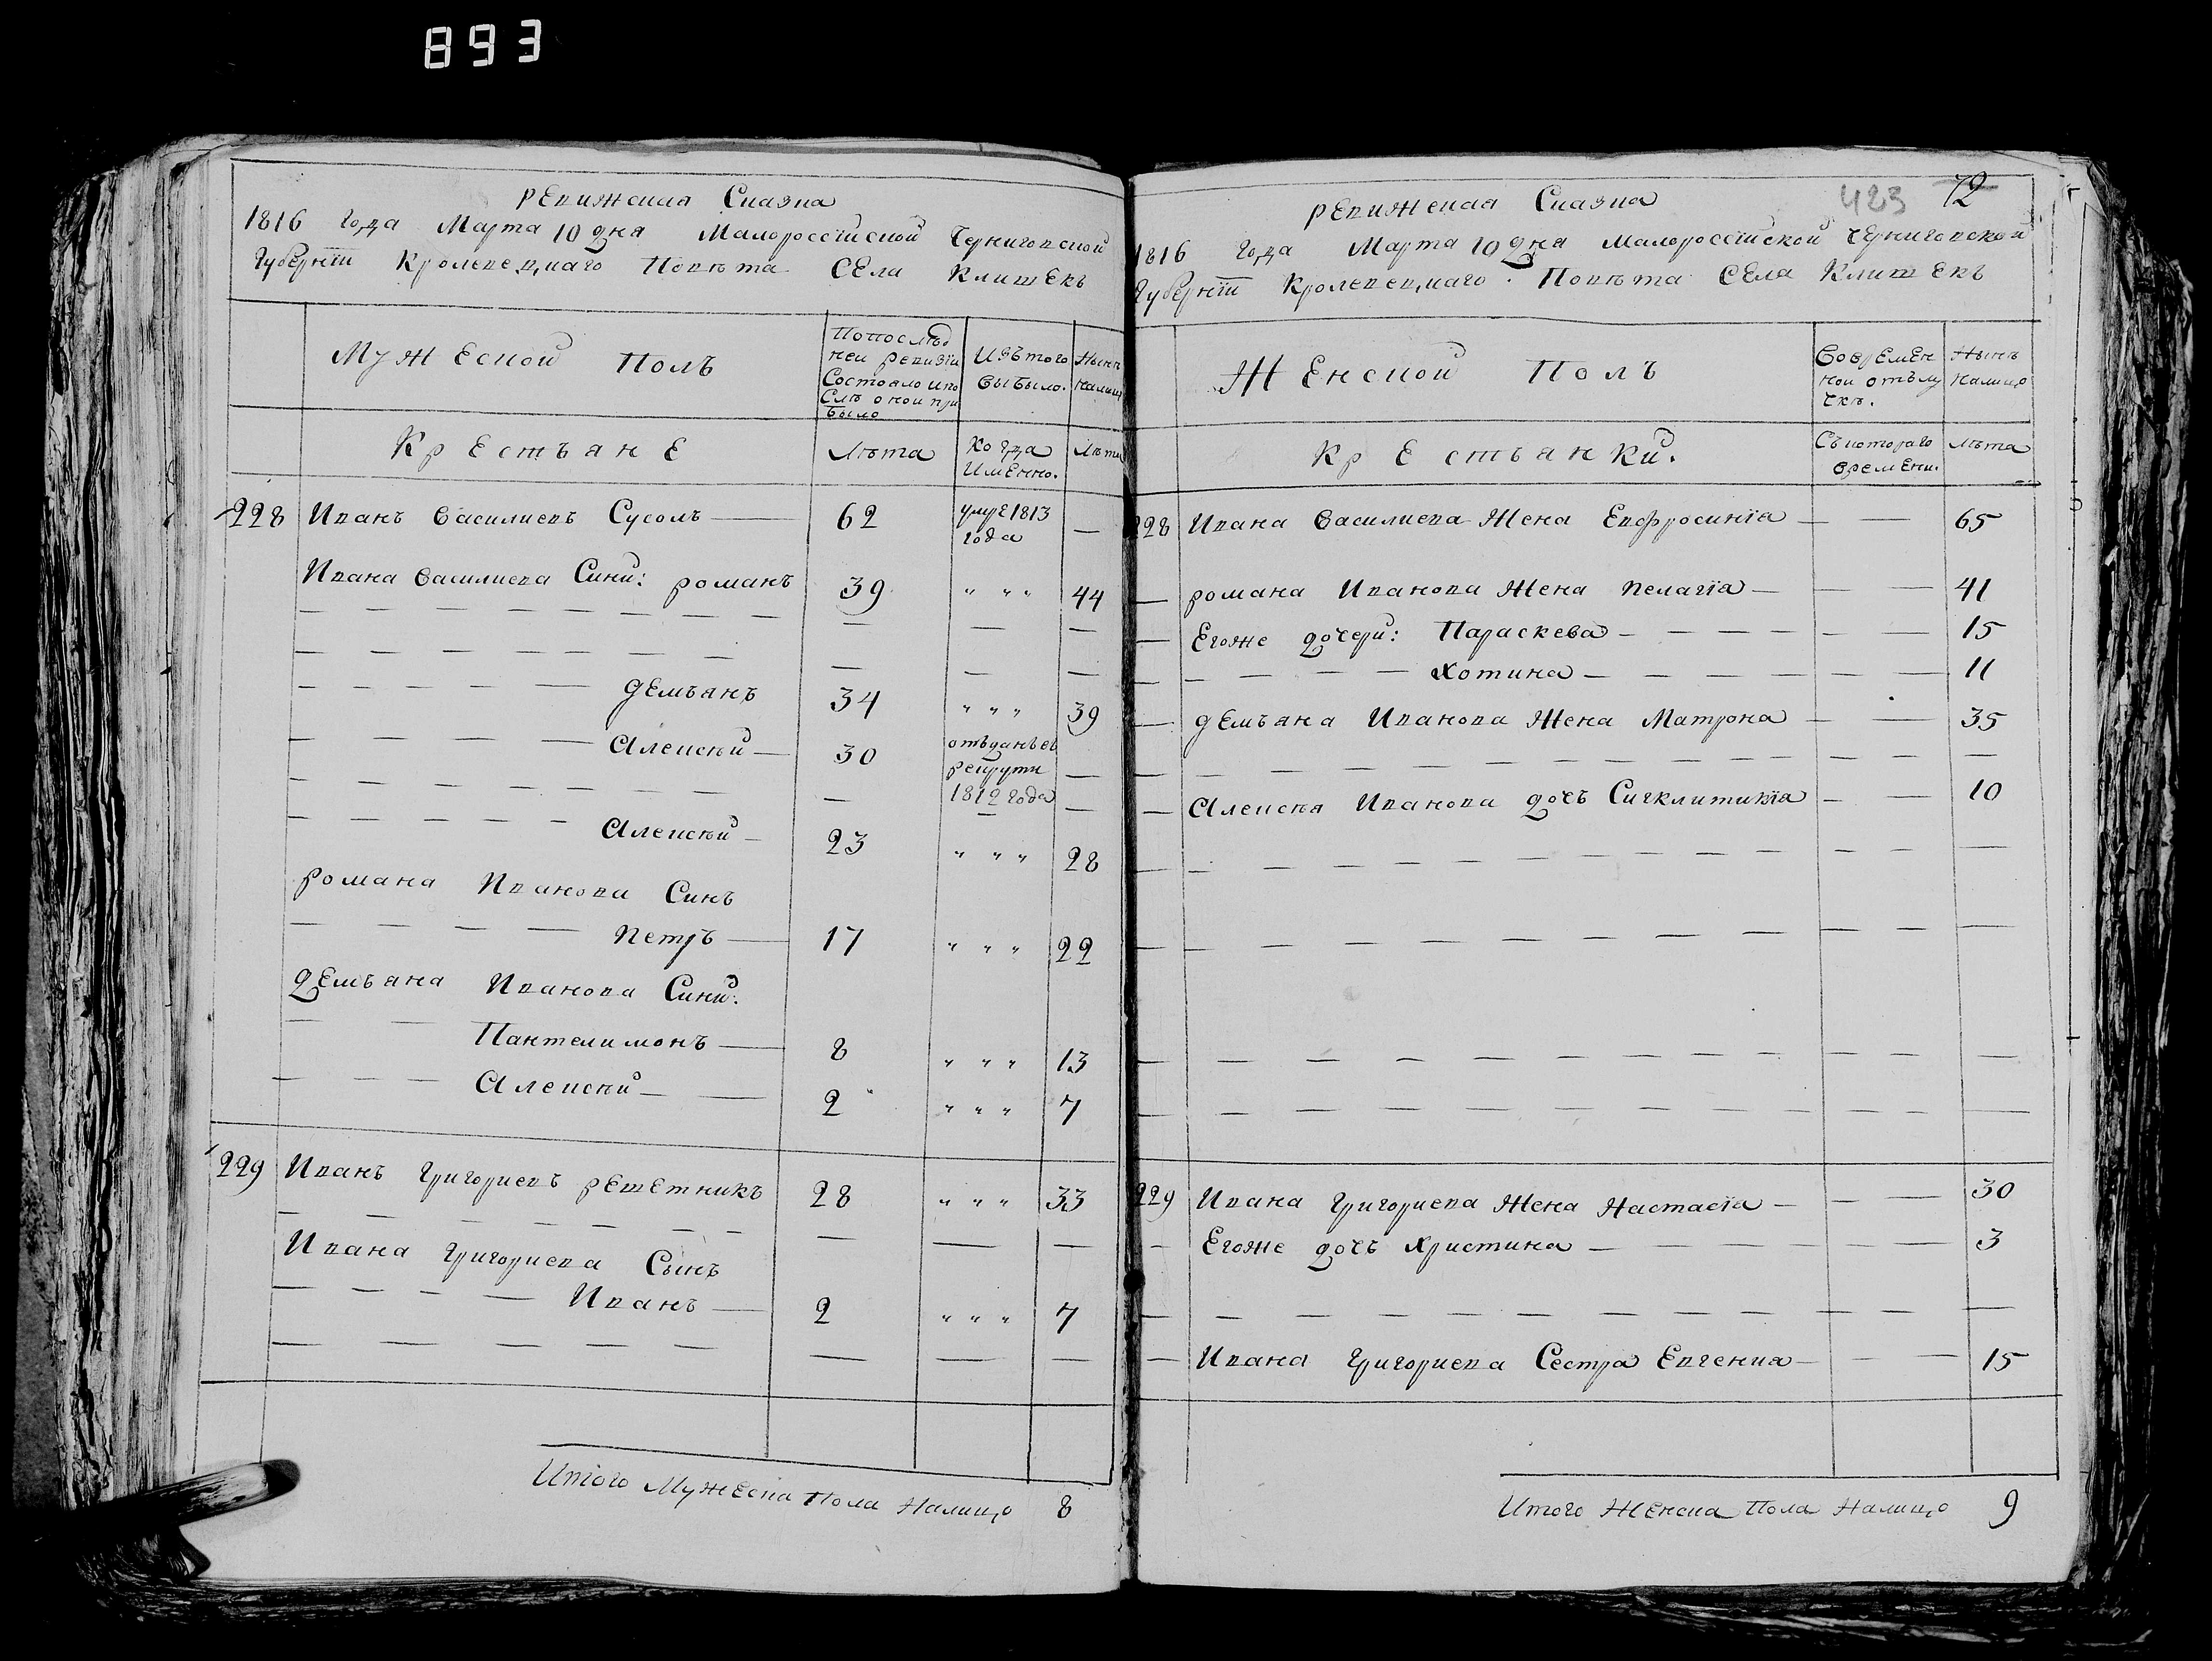 893
Ревижская Сказка
1816 года Марта 10 дня Малороссїйской Черниговской
Губернїи Кролевецкаго Повѣта Села Клишекъ
Мужеской Полъ
Попослѣд
ней ревизїи
Состояло и по
слѣ оной при
было
Изъ того
выбыло.
Нынѣ
налицо
Крестьяне
Лѣта
Когда
Именно.
Лѣта
228 Иванъ Василиевъ Суcолъ 62 умре 1813
года —
Ивана Василиева Сини: романъ 39 " " " 44
демъянъ 34 " " " 39
Алексѣй 30 отъданъ въ
рекрути
1812 года —
Алексѣй 23 " " " 28
романа Иванова Синъ
Петръ 17 " " " 22
демъяна Иванова Сини:
Пантелимонъ 8 " " " 13
Алексѣй 2 " " " 7
229 Иванъ Григориевъ решетникъ 28 " " " 33
Ивана Григориева Сынъ
Иванъ 2 " " " 7
Итого Мужеска Пола Налицо 8
423 72
Ревижская Сказка
1816 года Марта 10 дня Малороссїйской Черниговской
Губернїи Кролевецкаго Повѣта Села Клишекъ
Женской Полъ
Во времен
ной отълу
чкѣ.
Нынѣ
налицо
Крестьянки.
Съ котораго
времени.
Лѣта
228 Ивана Василиева Жена Евфросинїа — — 65
романа Иванова Жена Пелагїа — — 41
Егоже дочери: Параскева — — 15
Хотина — — 11
демъяна Иванова Жена Матрона — — 35
Алексѣя Иванова дочъ Сигклитикїа — — 10
229 Ивана Григориева Жена Настасїа — — 30
Егоже дочъ Христина — — 3
Ивана Григориева Сестра Евгениа — — 15
Итого Женска Пола Налицо 9